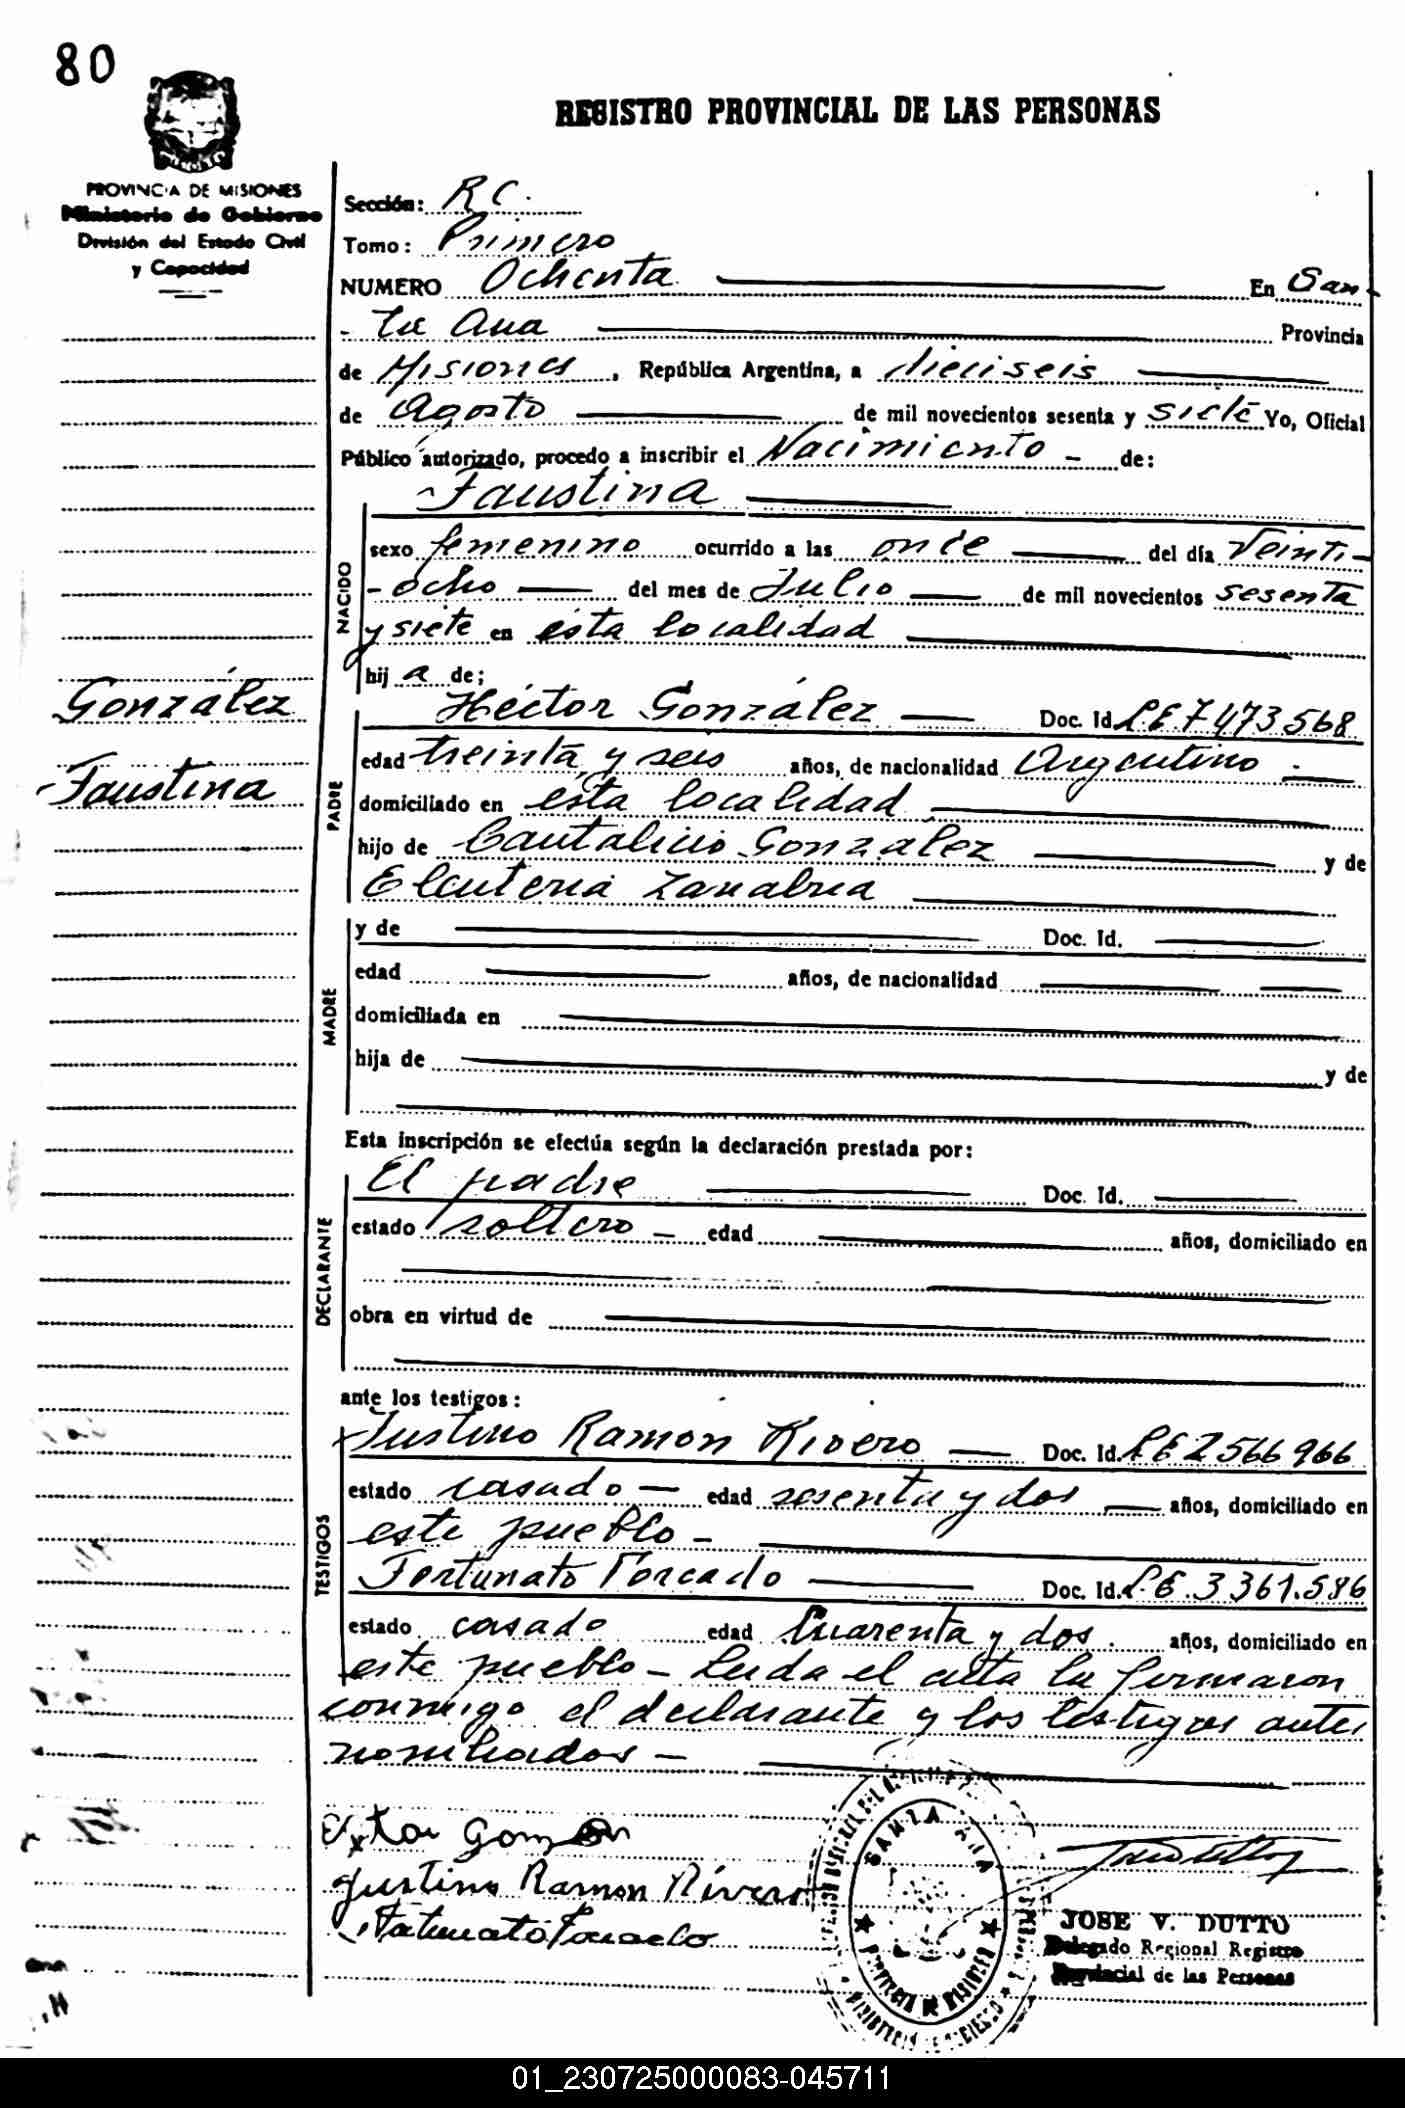 80
REGISTRO PROVINCIAL DE LAS PERSONAS
PROVINCIA DE MISIONES
Ministerio de Gobierno
División del Estado Civil
y Capacidad
Sección: R C.
Tomo: Primero
NUMERO Ochenta En San-
-ta Ana Provincia
de Misiones, República Argentina, a dieciseis
de Agosto de mil novecientos sesenta y siete Yo, Oficial
Público autorizado, procedo a inscribir el Nacimiento - de:
Faustina
NACIDO
sexo femenino ocurrido a las once del día Veinti-
-ocho del mes de Julio de mil novecientos sesenta
y siete en ésta localidad
hija de;
González
Faustina
PADRE
Héctor González Doc. Id. L.E 7.473.568
edad treinta y seis años, de nacionalidad Argentino.
domiciliado en ésta localidad
hijo de Cantalicio González y de
Eleuteria Zanabria
MADRE
y de Doc. Id.
edad años, de nacionalidad
domiciliada en
hija de y de
Esta inscripción se efectúa según la declaración prestada por:
DECLARANTE
El padre Doc. Id.
estado soltero - edad años, domiciliado en
obra en virtud de
ante los testigos:
TESTIGOS
Justino Ramón Rivero Doc. Id. L.E 2566966
estado casado - edad sesenta y dos años, domiciliado en
este pueblo -
Fortunato Doc. Id. L.E. 3361.586
estado casado edad Cuarenta y dos. años, domiciliado en
este pueblo - Leida el acta la firmaron
conmigo el declarante y los testigos antes
nombrados -
Justino Ramon Rivero
SANTA ANA
PROVINCIA DE MISIONES
JOSE V. DUTTO
Delegado Regional Registro
Provincial de las Personas
01_230725000083-045711